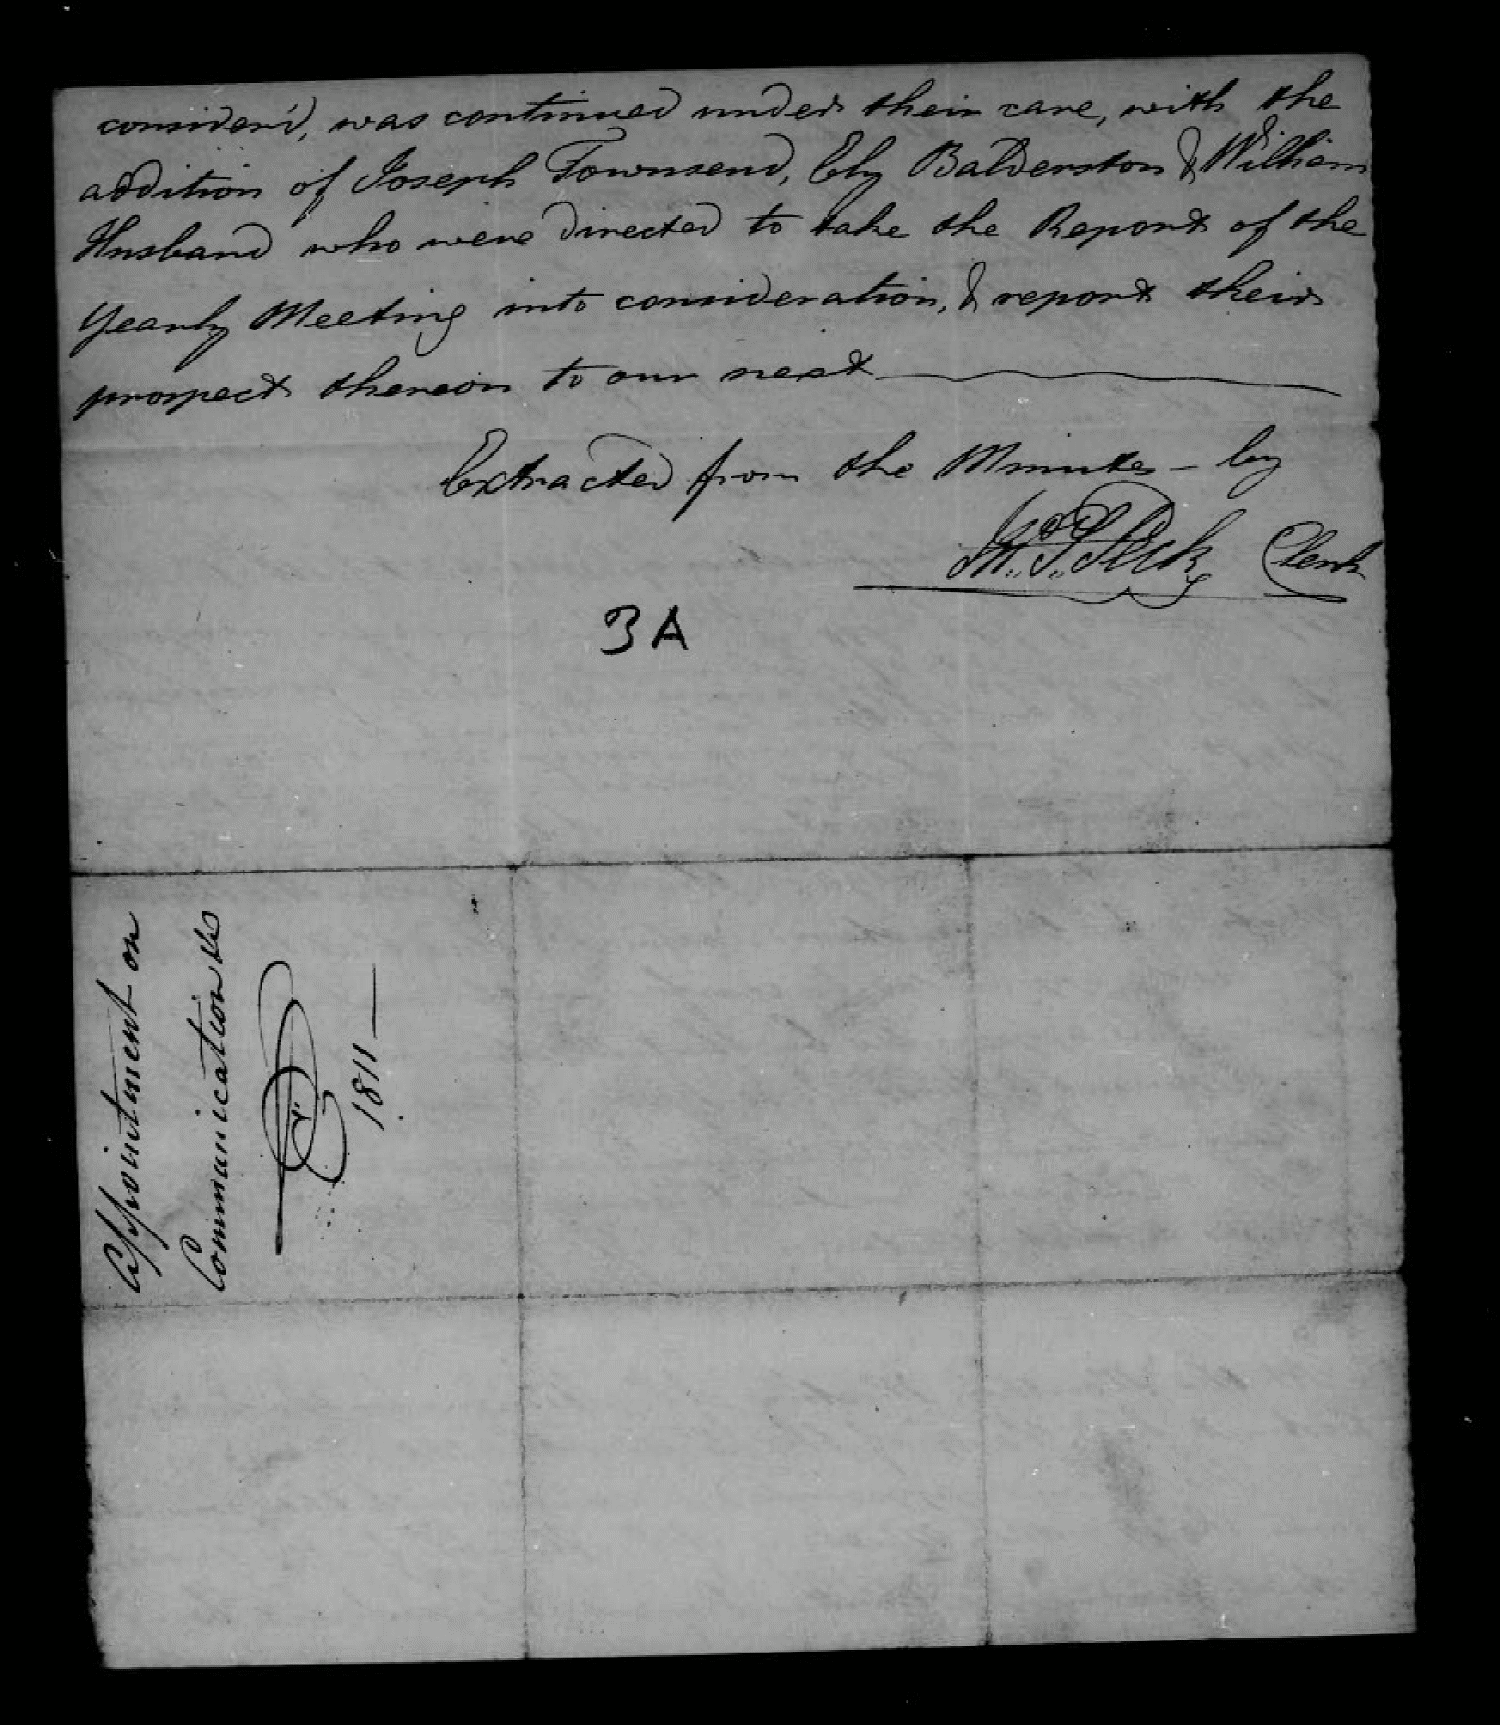 consider'd, was continued under their care, with the
addition of Joseph Townsend, Ely Balderston & William
Husband who were directed to take the Report of the
Yearly Meeting into consideration, & report their
prospect thereon to our next
Extracted from the Minutes - by
Clerk
3 A
Appointment on
Communication &c
1811